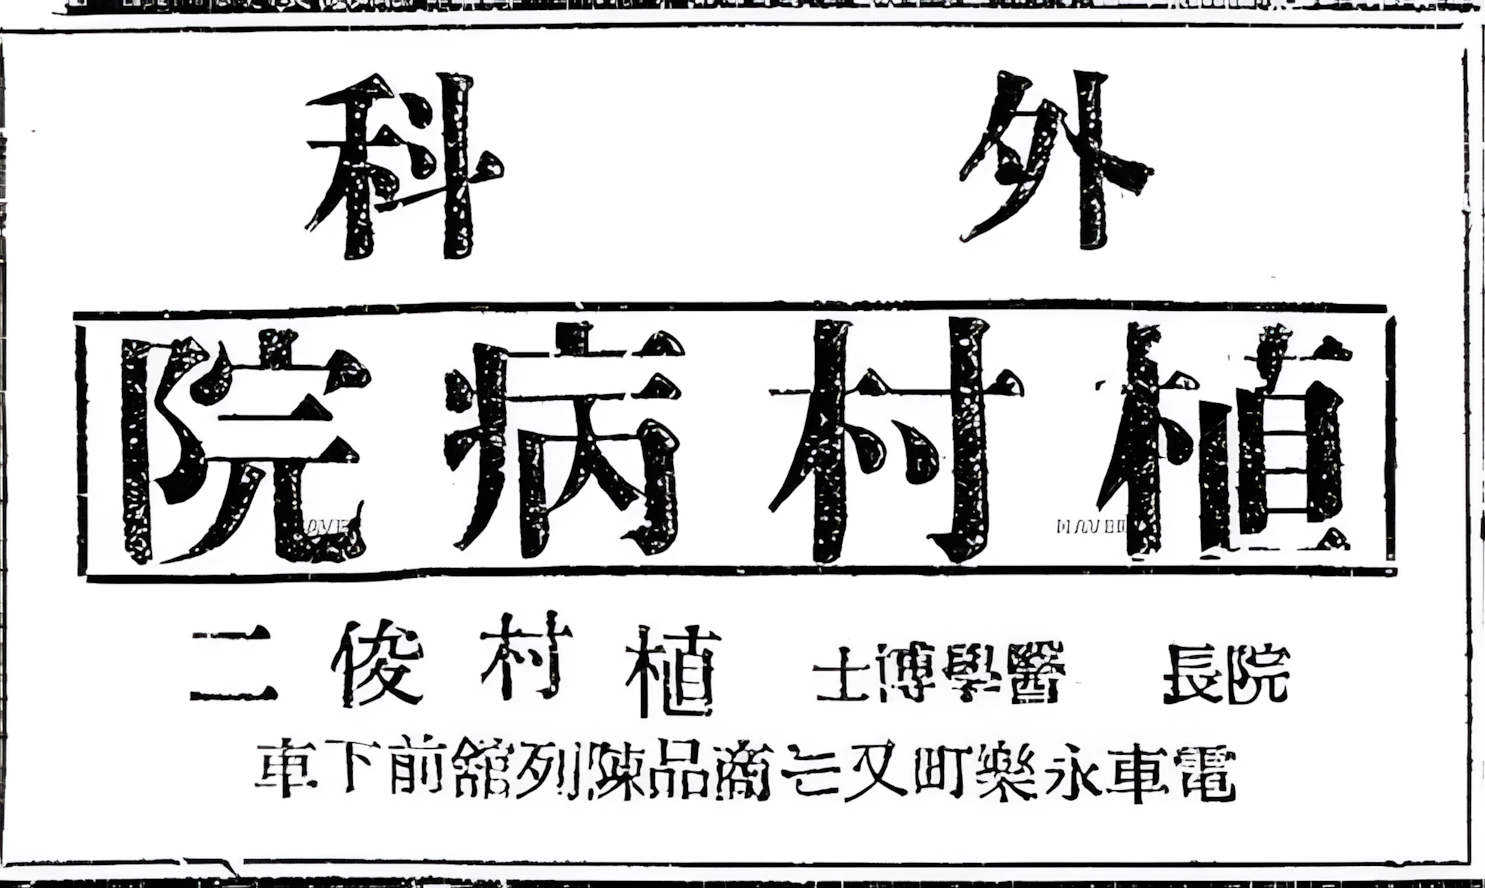 外科
植村病院
院長 醫學博士 植村俊二
電車永樂町又는商品陳列舘前下車
NAVER